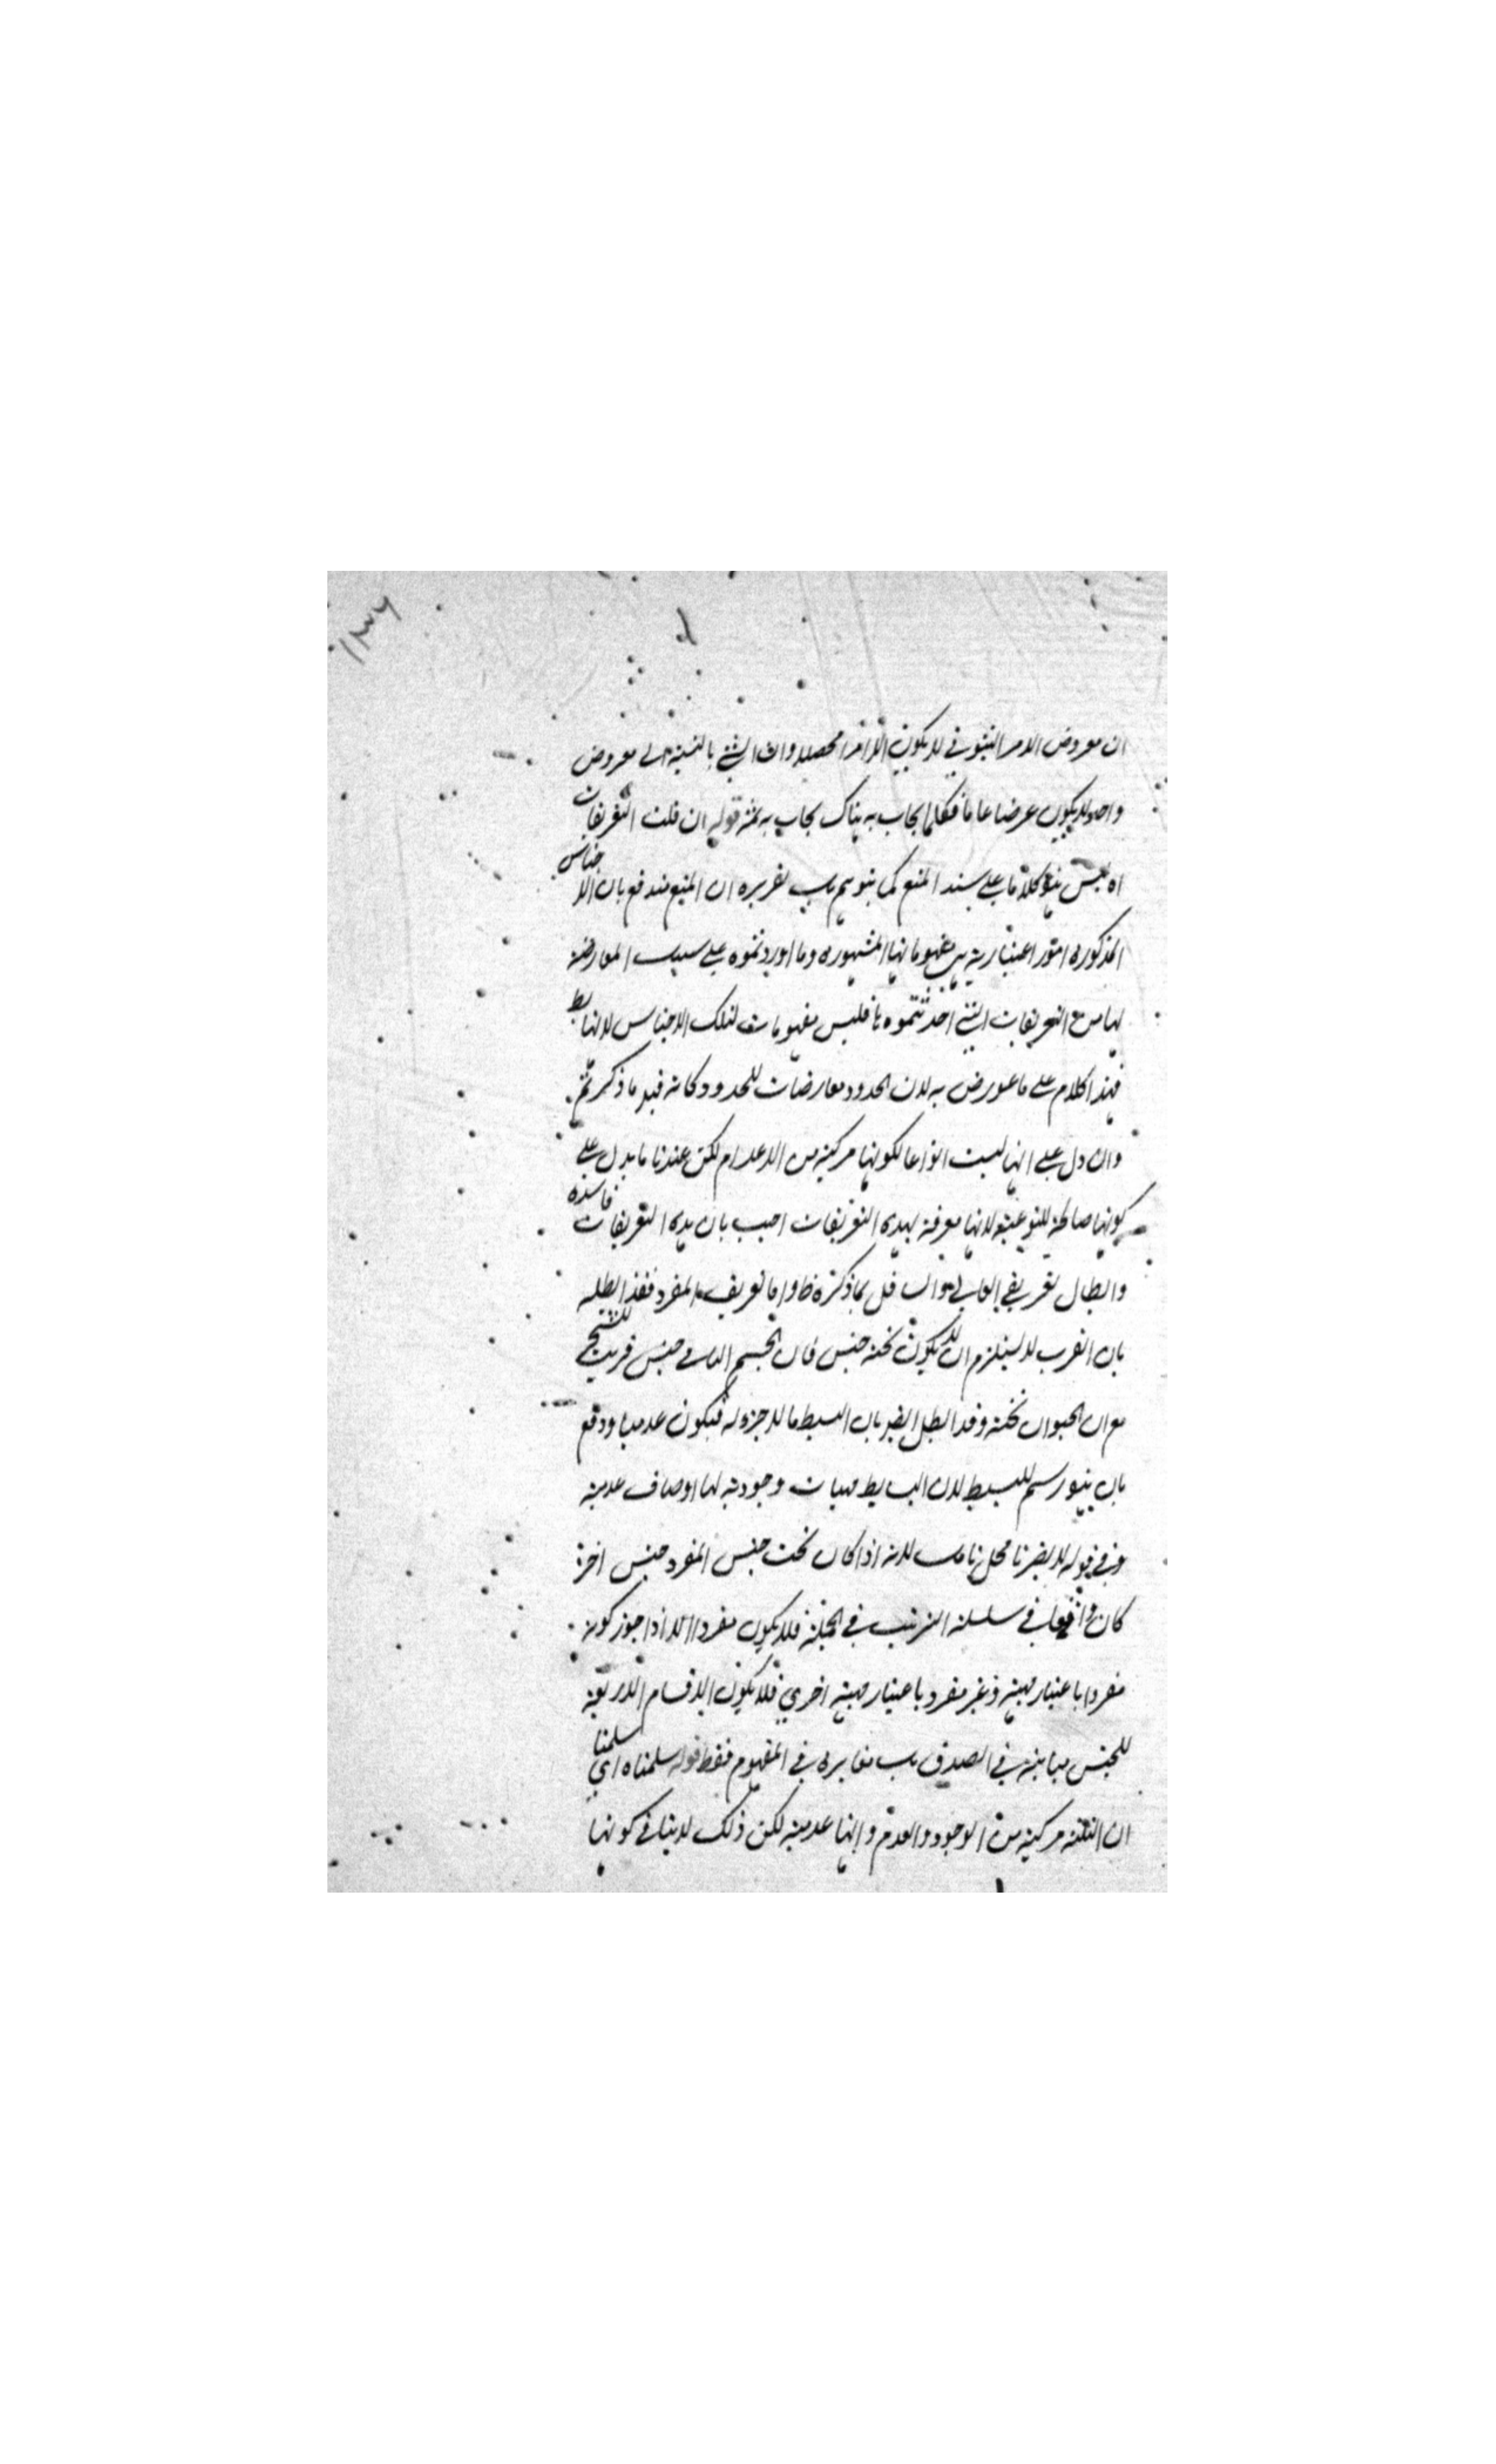 ان معروض الامر الثبوتي لا يكون الا امرا محصلا وان الشئ بالنسبة الى معروض
واحد لا يكون عرضا عاما فكلما يجاب به هناك يجاب به ثمة قوله ان قلت التعريفات
اه ليس هو كلاما على سند المنع كما يتوهم بل تقريره ان المنع مندفع بان الاجناس
المذكورة امور اعتبارية هي مفهوماتها المشهورة وما اوردتموه على سبيل المعارضة
لها من التعريفات التي احدثتموها فليس مفهومات لتلك الاجناس لانها
فهذا كلام على ما عورض به لان الحدود معارضات للحدود كانه قيل ما ذكرتم
وان دل على انها ليست انواعا لكونها مركبة من الاعدام لكن عندنا ما يدل على
كونها صالحة للنوعية لانها معرفة بهذه التعريفات اجيب بان هذه التعريفات فاسدة
وابطال تعريفي العالي والسافل بما ذكره ظ واما تعريف المفرد فقد ابطله
بان القرب لا يستلزم ان لا يكون تحته جنس فان الجسم النامي جنس قريب
مع ان الحيوان تحته وقد ابطل ايضا بان البسيط ما لا جزء له فيكون عدميا ودفع
بان هو رسم للبسيط لان البسايط مهيات وجودية لها اوصاف عدمية
وفي قوله لا يضرنا محل تامل لانه اذا كان تحت جنس المفرد جنس اخر
كان واقعا في سلسلة الترتيب في الجملة فلا يكون مفردا الا اذا جوز كونه
مفردا باعتبار مهية وغير مفرد باعتبار مهية اخرى فلا يكون الاقسام الاربعة
للجنس متباينة في الصدق بل متغايرة في المفهوم فقط قوله سلمناه اي سلمنا
ان الثلثة مركبة من الوجود والعدم وانها عدمية لكن ذلك لا ينافي كونها